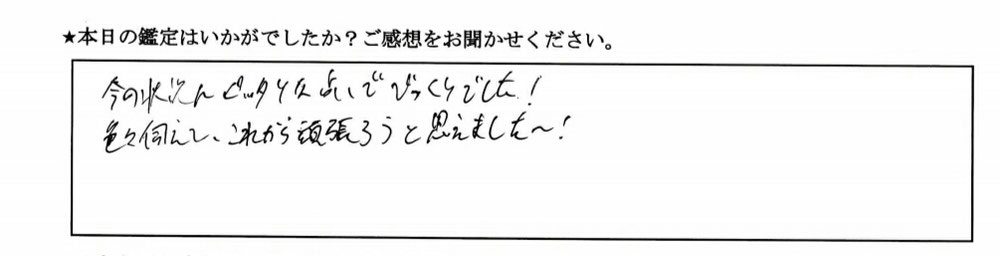 ★本日の鑑定はいかがでしたか？ご感想をお聞かせください。
今の状況にピッタリな占いでびっくりでした！
色々伺えて、これから頑張ろうと思えました〜！